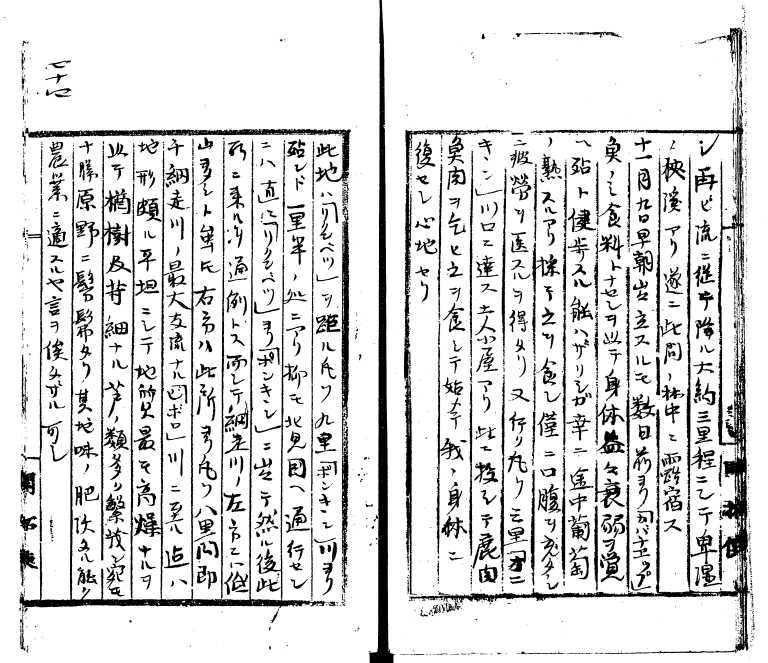 シ再ビ流ニ從テ降ル大約三里程ニシテ卑湿
ノ狹溪アリ遂ニ此間ノ林中ニ露宿ス
十一月九日早朝出立スルモ数日前ヨリ
魚ノミ食料トナセシヲ以テ身体益々衰弱ヲ覚
ヘ殆ト健歩スル能ハザリシガ幸ニ途中葡萄
ノ熟スルアリ採テ之ヲ食シ僅ニ口腹ヲ充タシ
疲労ヲ医スルヲ得タリ又行リ凡ソ三里
キン」川口ニ達ス土人小屋アリ此ニ投シテ鹿肉
魚肉ヲ乞ヒ之ヲ食シテ始メテ我ノ身体ニ
復セシ心地セリ
此地ハ「リクンベツ」ヲ距ル凡ソ九里「ポンキキン」川ヨリ
殆ンド一里半ノ処ニアリ抑モ北見国ヘ通行セシ
ニハ直ニ「リクンベツ」ヨリ「ポンキキン」ニ出テ然ル後此
所ニ来ルヲ通例トス而シテ網走川ノ左方ニハ低
山多シト雖モ右方ハ此所ヨリ凡ソ八里間即
チ網走川ノ最大支流ナル「ビホロ」川ニ至ル迄ハ
地形頗ル平坦ニシテ地質最モ高燥ナルヲ
以テ楢樹及ニ細ナル茅ノ類多ク繁茂シ宛モ
十勝原野ニ髣髴タリ其地味ノ肥沃ナル能ク
農業ニ適スルヤ言ヲ俟タザル可シ
七十四
開拓使